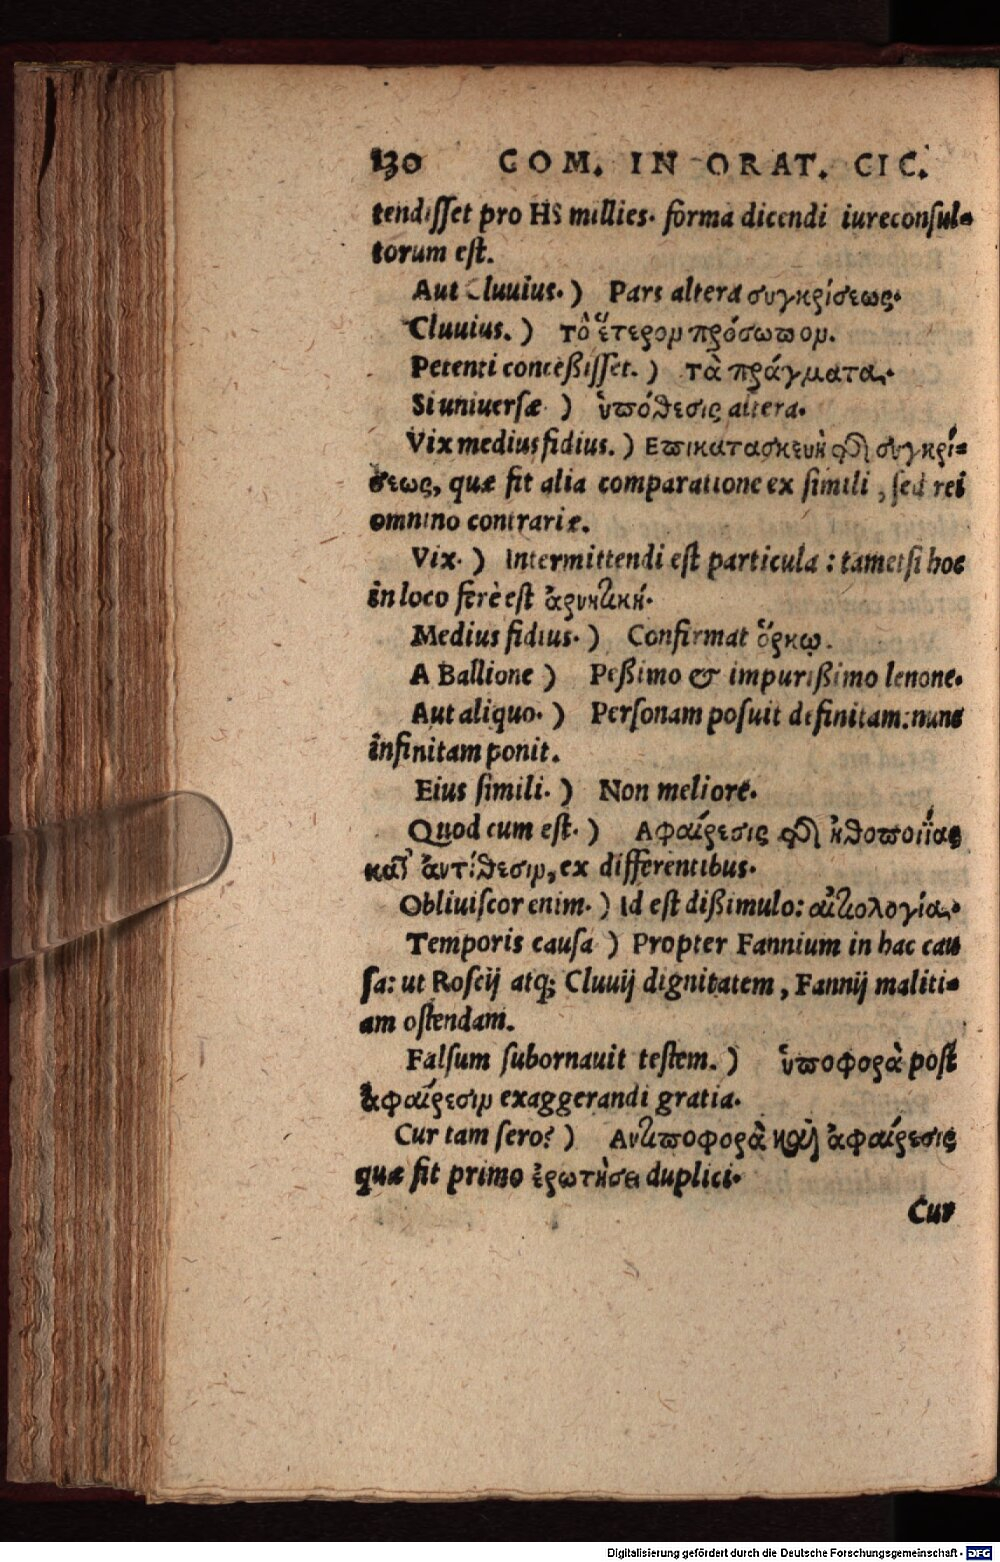 130 COM. IN ORAT. CIC.
tendisset pro HS millies. forma dicendi iureconsul-
torum est.
Aut Cluuius.) Pars altera συγκρίσεως.
Cluuius.) τὸ ἕτερον πρόσωπον.
Petenti conceßisset.) τὰ πράγματα.
Si uniuersæ ) ὑπόθεσις altera.
Vix mediusfidius.) Επικατασκευὴ τῆς συγκρί-
σεως, quæ fit alia comparatione ex simili, sed rei
omnino contrariæ.
Vix.) Intermittendi est particula: tametsi hoc
in loco ferè est ἀρνητική.
Medius fidius.) Confirmat ὅρκῳ.
A Ballione) Peßimo & impurißimo lenone.
Aut aliquo.) Personam posuit definitam: nunc
infinitam ponit.
Eius simili.) Non meliore.
Quod cum est.) Αφαίρεσις τῆς ἠθοποιίας
καὶ ἀντίθεσιν, ex differentibus.
Obliuiscor enim.) Id est dißimulo: αἰτιολογία.
Temporis causa ) Propter Fannium in hac cau
sa: ut Roscij atq; Cluuij dignitatem, Fannij maliti-
am ostendam.
Falsum subornauit testem.) ὑποφορὰ post
ἀφαίρεσιν exaggerandi gratia.
Cur tam sero?) Αντιποφορὰ καὶ ἀφαίρεσις
quæ fit primo ἐρωτήσει duplici.
Cur
Digitalisierung gefördert durch die Deutsche Forschungsgemeinschaft - DFG